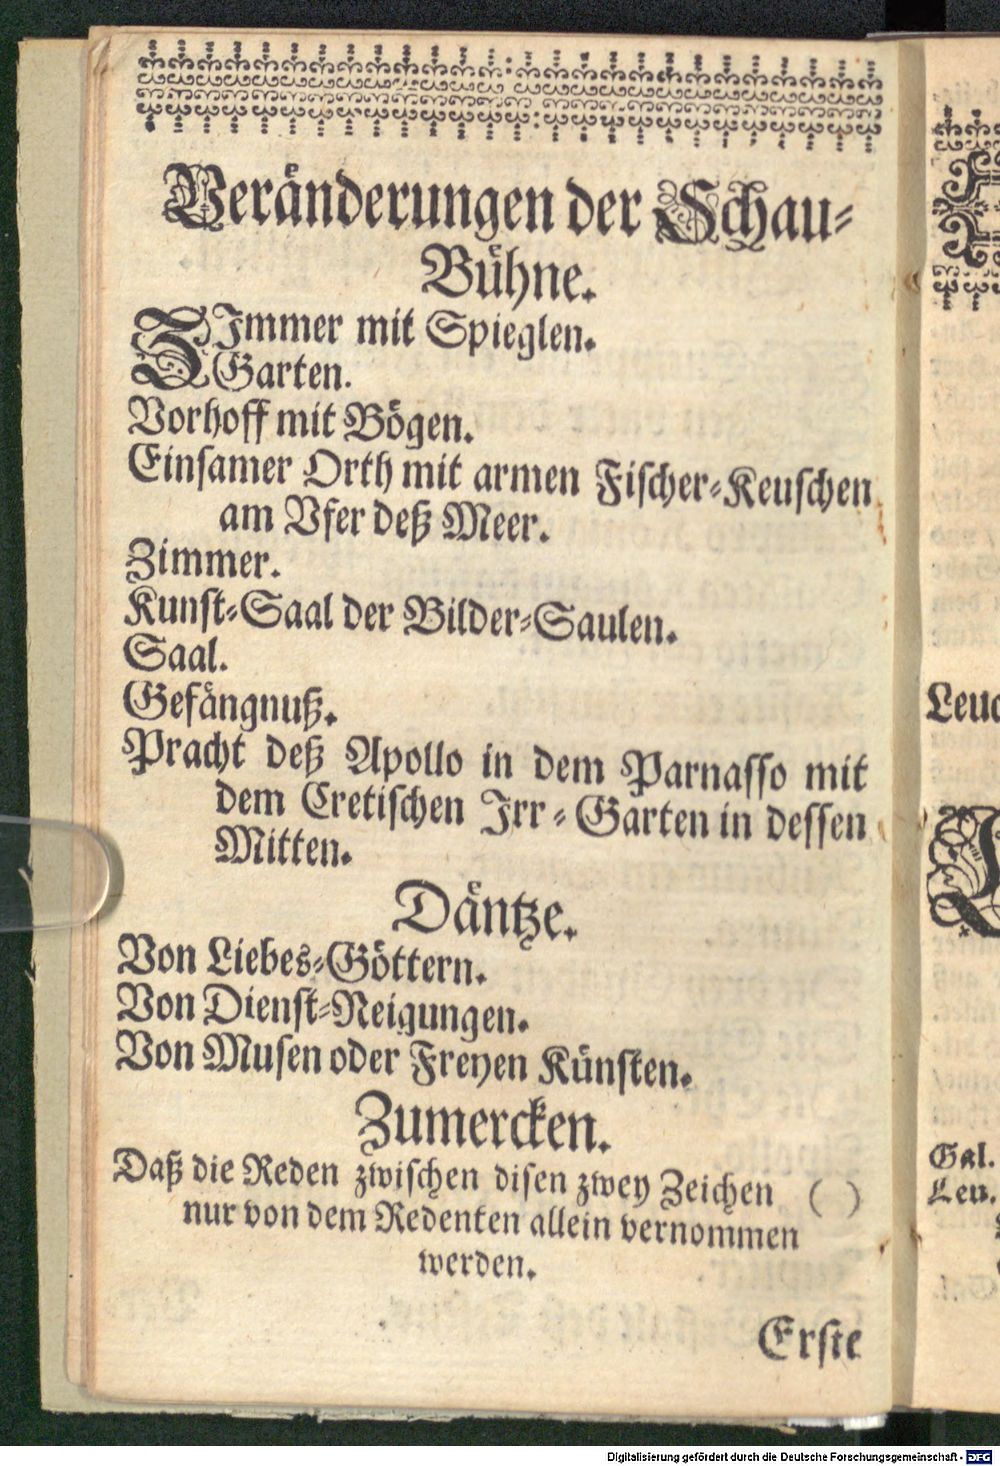 Veränderungen der Schau-
Bühne.
ZImmer mit Spieglen.
Garten.
Vorhoff mit Bögen.
Einsamer Orth mit armen Fischer-Keuschen
am Vfer deß Meer.
Zimmer.
Kunst-Saal der Bilder-Saulen.
Saal.
Gefängnuß.
Pracht deß Apollo in dem Parnasso mit
dem Cretischen Irr-Garten in dessen
Mitten.
Däntze.
Von Liebes-Göttern.
Von Dienst-Neigungen.
Von Musen oder Freyen Künsten.
Zumercken.
Daß die Reden zwischen disen zwey Zeichen ( )
nur von dem Redenten allein vernommen
werden.
Erste
Gal.
Leu.
Digitalisierung gefördert durch die Deutsche Forschungsgemeinschaft - DFG